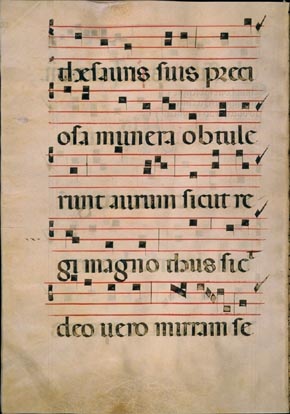 thesauris suis preci
osa munera obtule
runt aurum sicut re
gi magno thus sic̄
deo uero mirram se